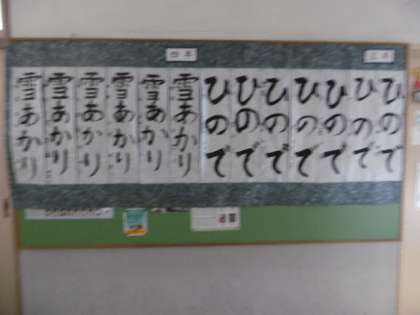 三年
ひので
ひので
ひので
ひので
ひので
ひので
ひので
四年
雪あかり
雪あかり
雪あかり
雪あかり
雪あかり
雪あかり